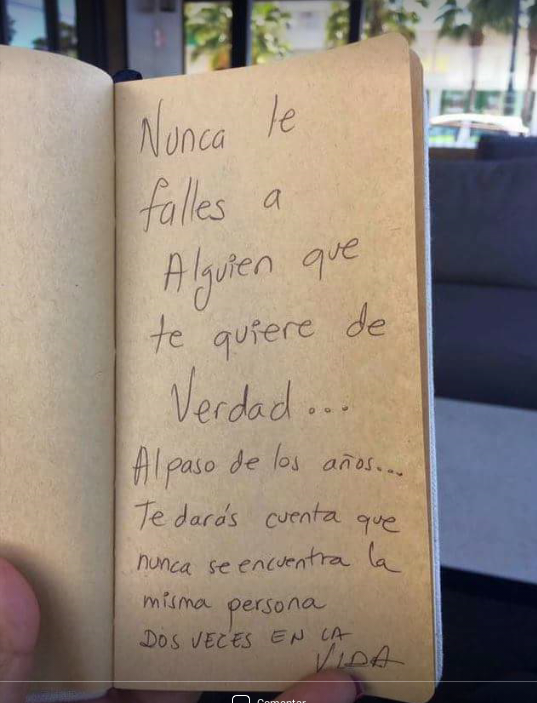 Nunca le
falles a
Alguien que
te quiere de
Verdad...
Al paso de los años...
Te darás cuenta que
nunca se encuentra la
misma persona
DOS VECES EN LA
VIDA
Comentar